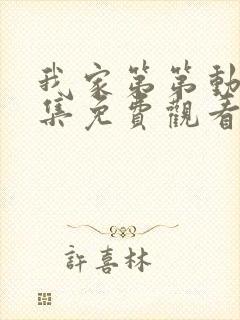 我家第第動
集免費觀看
許喜林